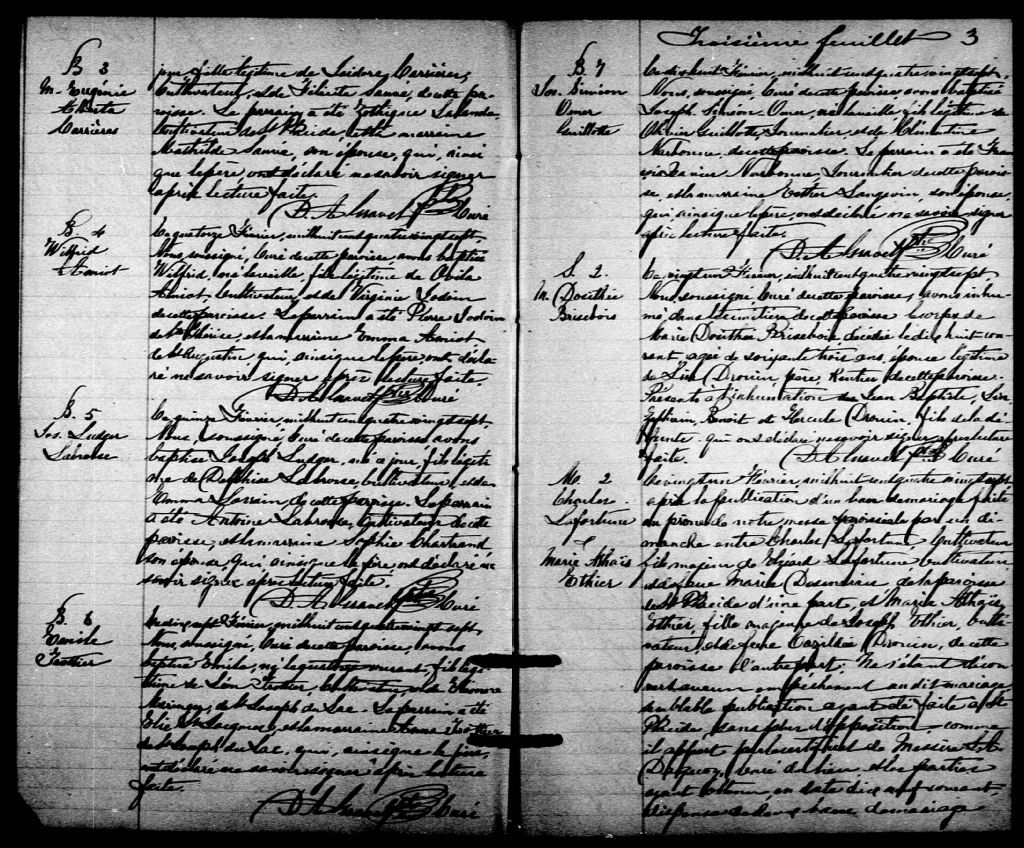 B 3
M. Eugénie
Alberta
Carrières
jour fille légitime de Isidore Carrières,
Cultivateur, et de Sauvé, de cette pa-
roisse. Le parrain a été Lalande
Cultivateur de St Placide et la marraine
Mathilde Sauvé, son épouse, qui, ainsi
que le père ont déclaré ne savoir signer
après lecture faite.
Curé
B 4
Wilfrid
Amiot
Le quatorze Février, mil huit cent quatre vingt sept,
Nous, soussigné, Curé de cette paroisse avons baptisé
Wilfrid, né la veille fils légitime de Ovila
Amiot, Cultivateur, et de Virginie Lodoin
de cette paroisse. Le parrain a été Pierre Lodoin
de, et la marraine Emma Amiot
de St Augustin qui, ainsi que le père ont décla-
ré ne savoir signer après lecture faite.
Curé
B. 5
Jos. Ludger
Labrosse
Le quinze Février, mil huit cent quatre vingt sept
Nous, soussigné, Curé de cette paroisse avons
baptisé Joseph Ludger, né à jour, fils légiti-
me de Delphise Labrosse, cultivateur, et de
Emma Lorrain, de cette paroisse. Le parrain
a été Antoine Labrosse, Cultivateur de cette
paroisse, et la marraine Sophie Chartrand
son épouse, qui, ainsi que le père, ont déclaré ne
savoir signer après lecture faite.
Curé
B. 6
Emile
Trottier
Le dix sept Février, mil huit cent quatre vingt sept
Nous, soussigné, Curé de cette paroisse, avons
baptisé Emile, né le quatorze courant, fils légi-
time de Léon Trottier, Cultivateur, et de Eléonore
Maringer, de St Joseph du Lac. Le parrain a été
Elie St Jacques, et la marraine Anna Trottier
de St Joseph du Lac, qui, ainsi que le père,
ont déclaré ne savoir signer après lecture
faite.
Curé
Troisième feuillet 3
B. 7
Jos. Siméon
Omer
Guillotte
Le dix huit Février, mil huit cent quatre vingt sept,
Nous, soussigné, Curé de cette paroisse avons baptisé
Joseph Siméon Omer, né la veille, fils légitime de
Olivier Guillotte, Journalier, et de Clémentine
Narbonne, de cette paroisse. Le parrain a été Fran-
çois Xavier Narbonne, Journalier de cette parois-
se, et la marraine Esther Langevin, son épouse,
qui, ainsi que le père, ont déclaré ne savoir signer
après lecture faite.
Curé
S 2.
M. Dorithée
Brisebois
Le vingt un Février, mil huit cent quatre vingt sept
Nous, soussigné, Curé de cette paroisse, avons inhu-
mé dans le cimetière de cette paroisse le corps de
Marie Dorithée Brisebois décédée le dix huit cou-
rant, agée de soixante trois ans, épouse légitime
de Léon Drouin, père, Rentier de cette paroisse.
Présents à l'inhumation de Jean Baptiste, Léon
Ephrem, Benoit et Hercule Drouin, fils de la dé-
funte qui ont déclaré ne savoir signer après lecture
faite.
Curé
M. 2
Charles
Lafortune
&
Marie Athaïs
Ethier
Le vingt un Février, mil huit cent quatre vingt sept
après la publication d'un ban de mariage faite
au prône de notre messe paroissiale par un di-
manche entre Charles Lafortune Cultivateur
fils majeur de Elzéard Lafortune Cultivateur
et de feue Marie Desmarais de la paroisse
de St Placide d'une part, et Marie Athaïs
Ethier, fille majeure de Joseph Ethier, culti-
vateur, et de feue Drouin, de cette
paroisse d'autre part. Ne s'étant décou-
vert aucun empêchement au dit mariage,
semblable publication ayant été faite à St
Placide, sans plus d'opposition, comme
il appert par le certificat de Messire
Curé du lieu et les parties
ayant obtenu, en date dix neuf courant,
dispense de deux bans de mariage